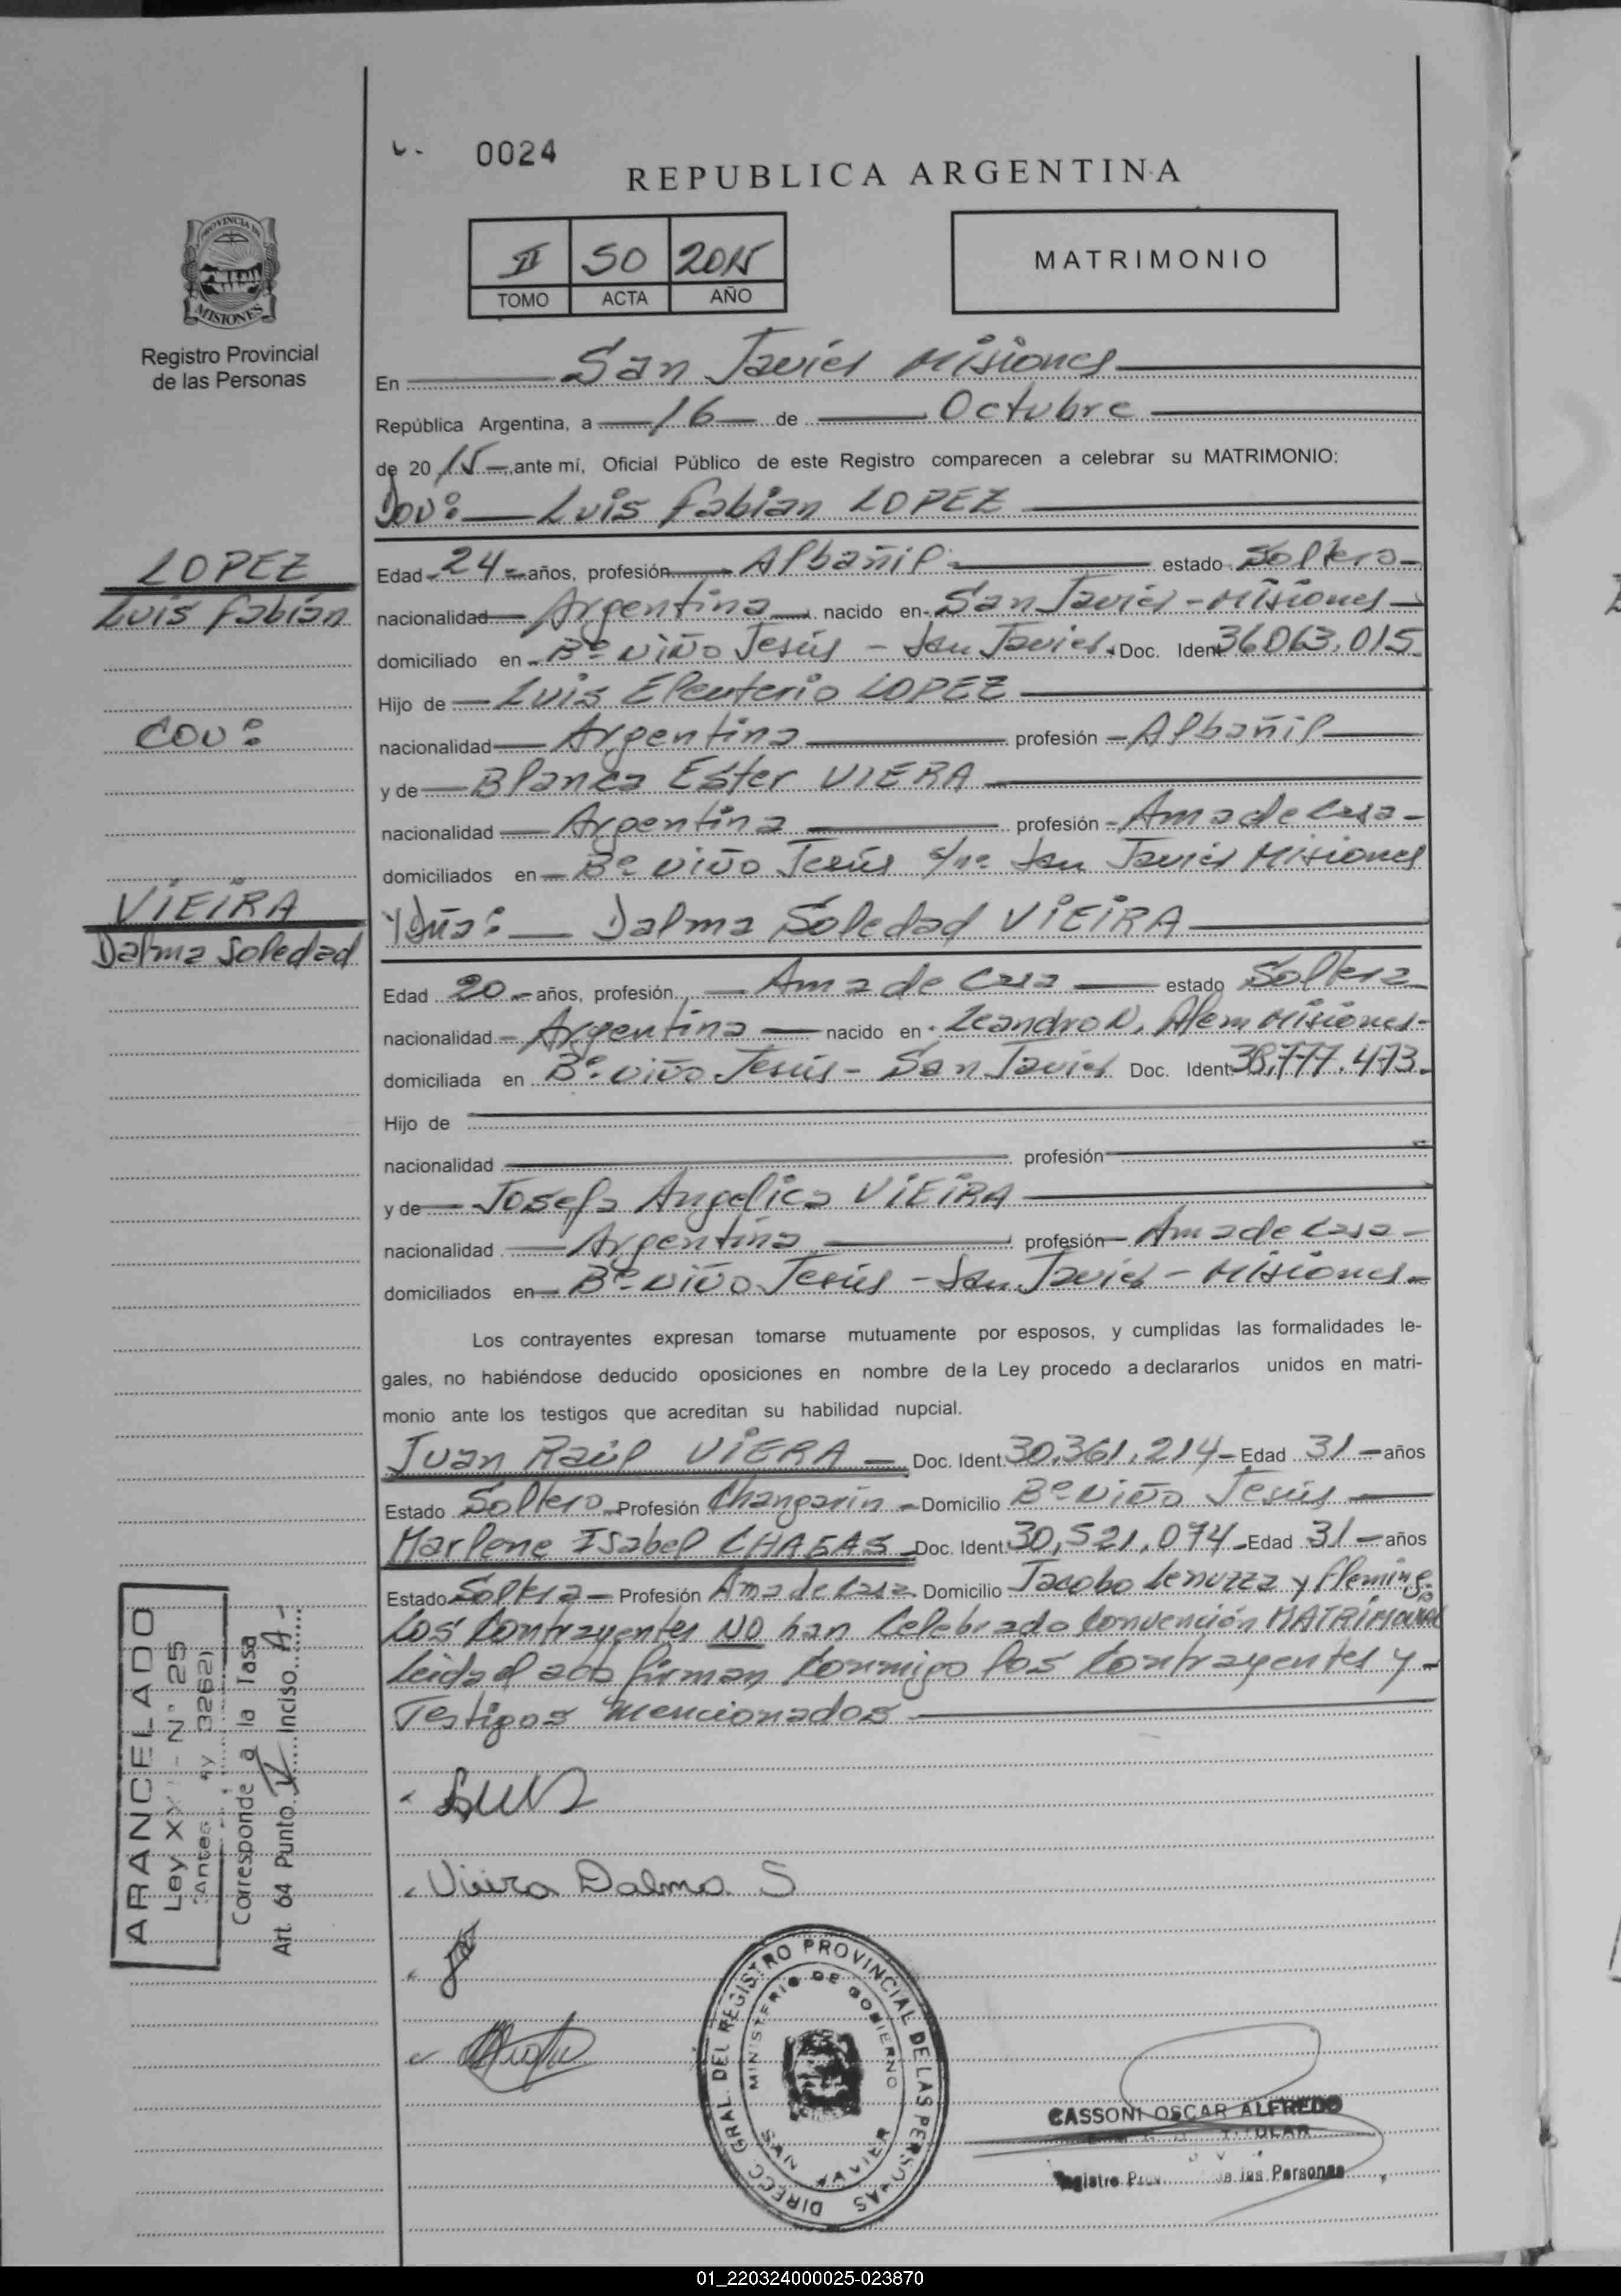 0024
REPUBLICA ARGENTINA
PROVINCIA DE
MISIONES
Registro Provincial
de las Personas
II 50 2015
TOMO ACTA AÑO
MATRIMONIO
En San Javier Misiones
República Argentina, a 16 de Octubre
de 20 15 ante mí, Oficial Público de este Registro comparecen a celebrar su MATRIMONIO:
Don: Luis Fabian LOPEZ
LOPEZ
Luis Fabián
Edad 24 años, profesión Albañil estado Soltero
nacionalidad Argentina nacido en San Javier - Misiones
domiciliado en Bº Niño Jesús - San Javier. Doc. Ident 36.063.015
Hijo de Luis Eleuterio LOPEZ
CON:
nacionalidad Argentina profesión Albañil
y de Blanca Ester VIERA
nacionalidad Argentina profesión Ama de Casa
domiciliados en Bº Niño Jesús s/nº San Javier Misiones
VIEIRA
Dalma Soledad
Y Dña: Dalma Soledad VIEIRA
Edad 20 años, profesión Ama de Casa estado Soltera
nacionalidad Argentina nacido en Leandro N. Alem Misiones
domiciliada en Bº Niño Jesús - San Javier Doc. Ident 38.777.473
Hijo de
nacionalidad profesión
y de Josefa Angelica VIEIRA
nacionalidad Argentina profesión Ama de Casa
domiciliados en Bº Niño Jesús - San Javier - Misiones
Los contrayentes expresan tomarse mutuamente por esposos, y cumplidas las formalidades le-
gales, no habiéndose deducido oposiciones en nombre de la Ley procedo a declararlos unidos en matri-
monio ante los testigos que acreditan su habilidad nupcial.
Juan Raúl VIERA Doc. Ident 30.361.214 Edad 31 años
Estado Soltero Profesión Changarín Domicilio Bº Niño Jesús
Marlene Isabel CHAGAS Doc. Ident 30.521.074 Edad 31 años
Estado Soltera Profesión Ama de Casa Domicilio Jacobo Lenuzza y Fleming
Los Contrayentes NO han Celebrado Convención MATRIMONIAL
Leida el acta firman Conmigo los Contrayentes y
Testigos Mencionados
ARANCELADO
Ley XXI - Nº 25
(Antes Ley 3262)
Corresponde a la Tasa
Art. 64 Punto V Inciso A
Vieira Dalma S
DIRECC. GRAL. DEL REGISTRO PROVINCIAL DE LAS PERSONAS
MINISTERIO DE GOBIERNO
SAN JAVIER
CASSONI OSCAR ALFREDO
TITULAR
Registro Prov. de las Personas
01_220324000025-023870